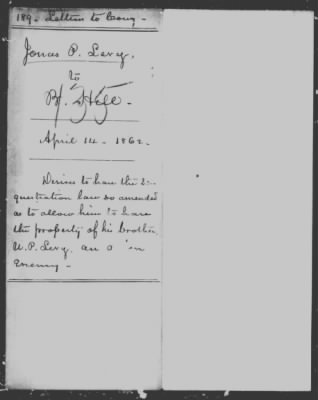 189. Letters to Cong -
Jonas P. Levy,
to
B. H. Hill -
April 14 - 1862 -
Desires to have the Se-
questration law so amended
as to allow him to have
the property of his brother,
U. P. Levy, an
Enemy -